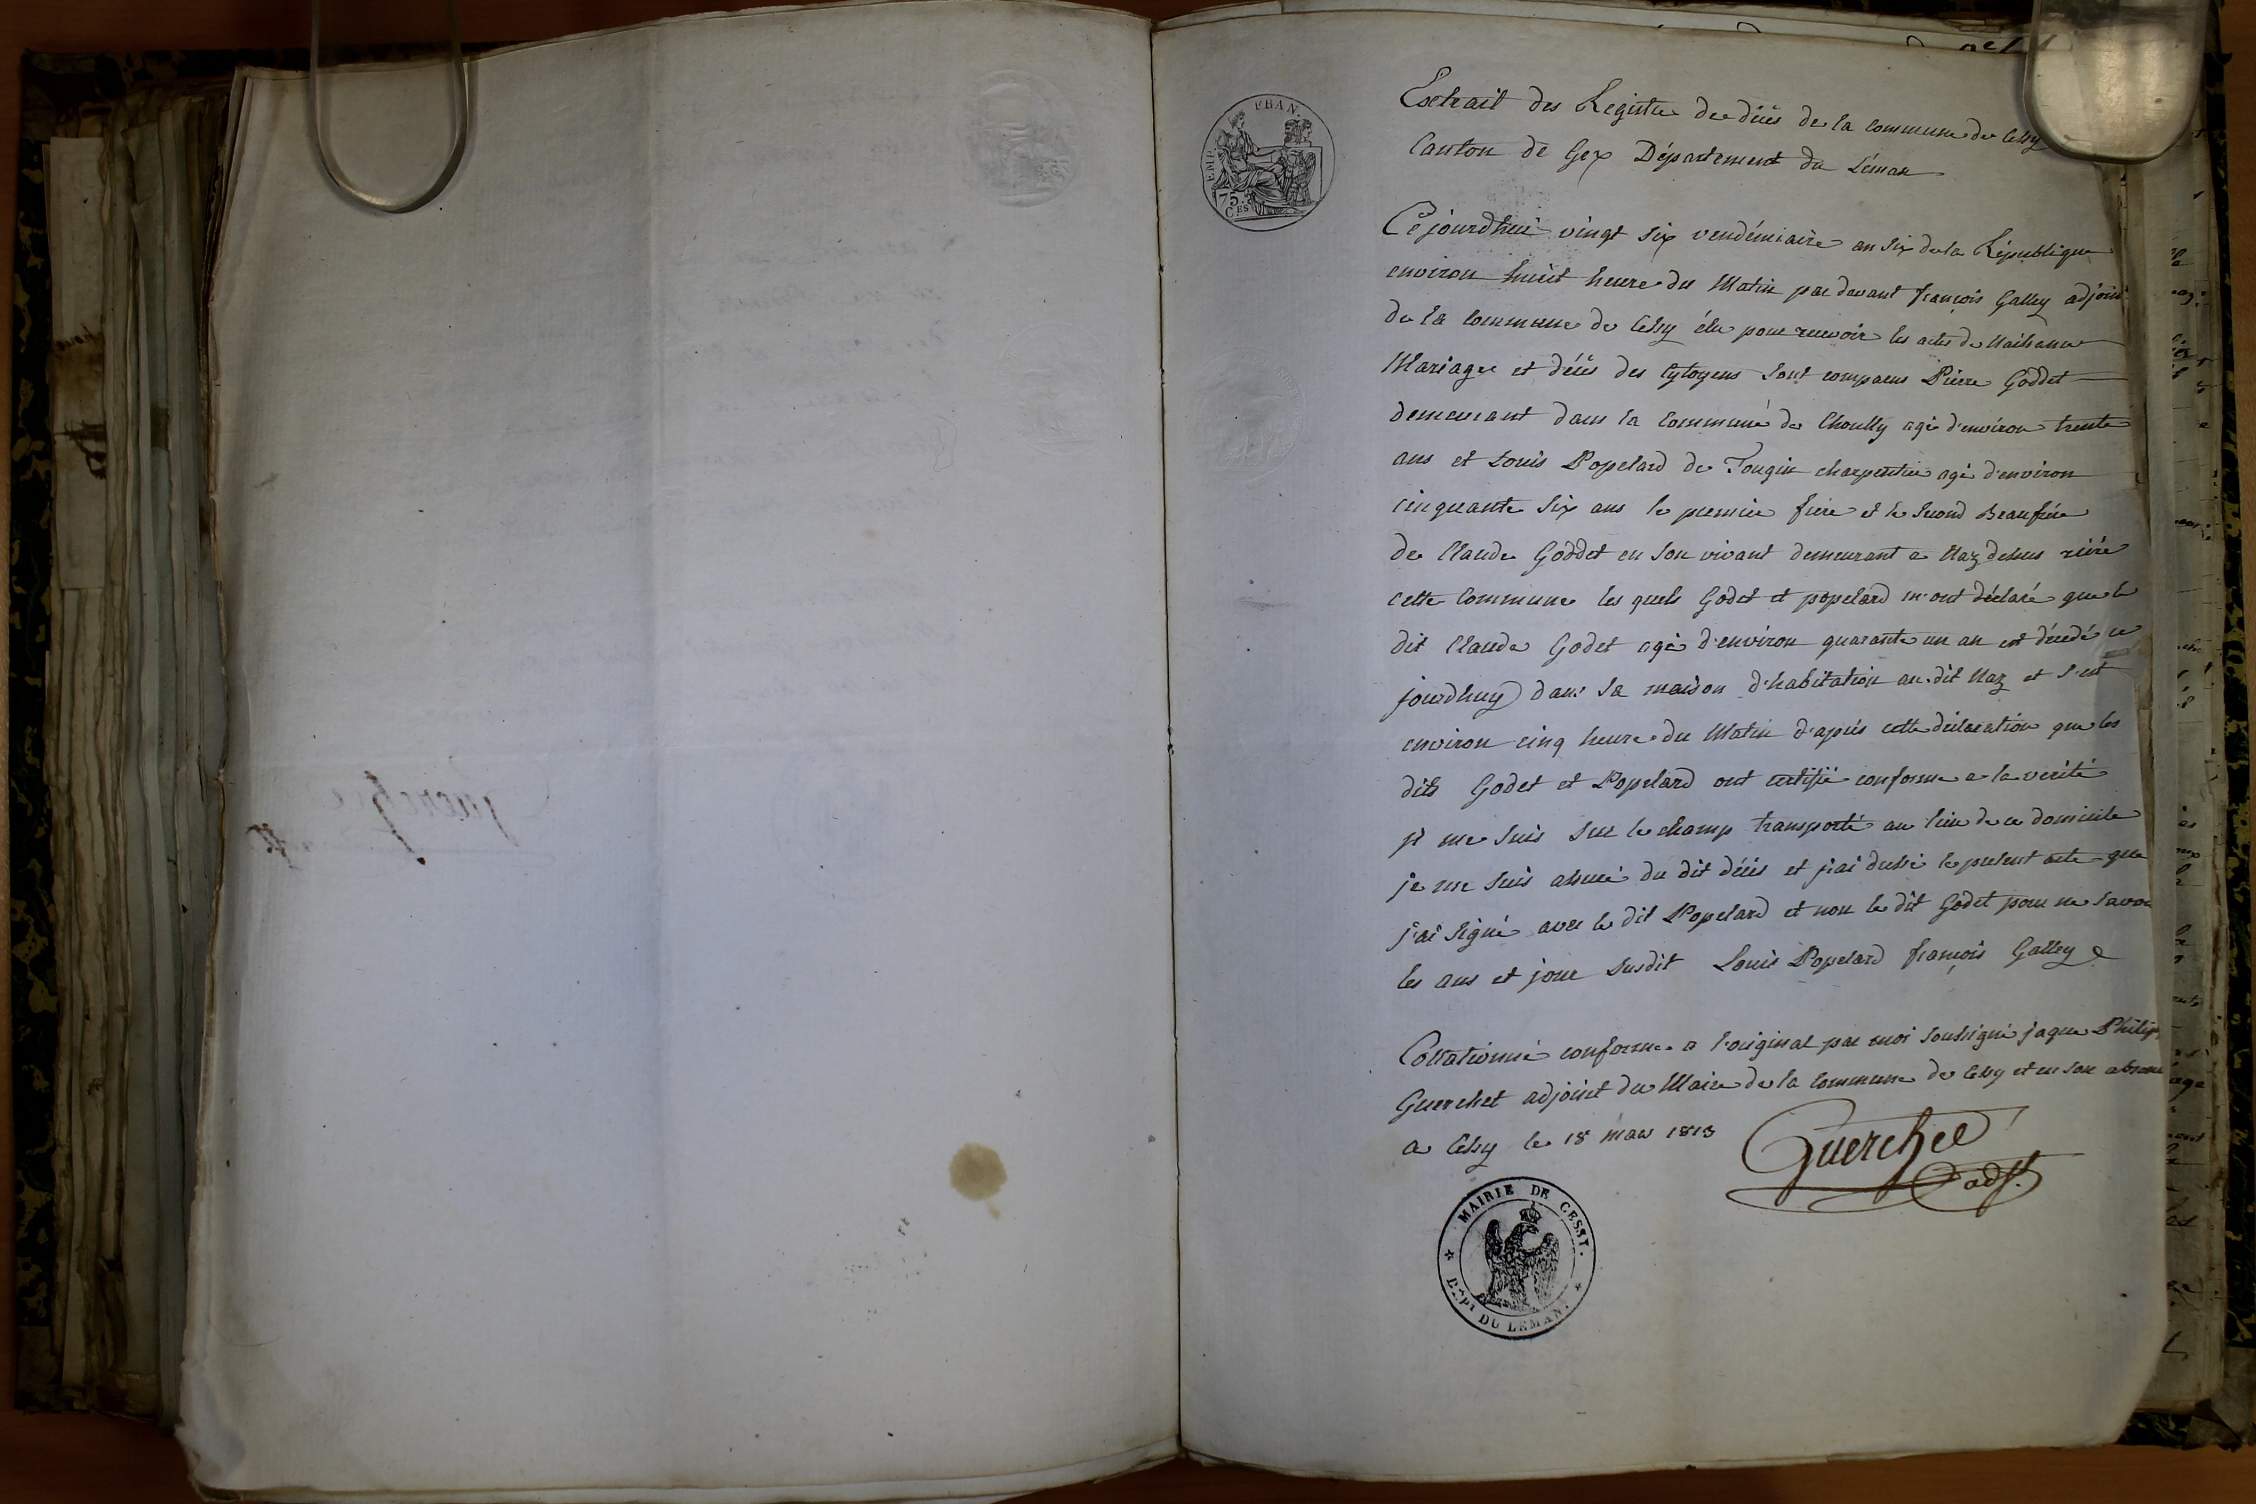 EMP. FRAN.
75.
CES
Extrait des Registre de décès de la commune de Cessy
Canton de Gex Département du Léman
Ce jourdhui vingt six vendémiaire an six de la République
environ huit heure du Matin par devant françois Galley adjoint
de la Commune de Cessy élu pour recevoir les actes de Naissance
Mariage et décès des Cytoyens sont comparus Pierre Goddet
demeurant dans la Commune de Choully agé d'environ trente
ans et Louis Popelard de Tougin charpentier agé d'environ
cinquante six ans le premier frere et le second Beaufrére
de Claude Goddet en son vivant demeurant a Naz dessus riére
cette Commune les quels Godet et popelard m'ont déclaré que le
dit Claude Godet agé d'environ quarante un an est décédé ce
jourdhuy dans sa maison d'habitation au dit Naz et s'est
environ cinq heure du Matin d'après cette déclaration que les
dits Godet et Popelard ont certifié conforme a la verité
je me suis sur le champ transporté au lieu de ce domicile
je me suis assuré du dit décès et j'ai dressé le présent acte que
j'ai signé avec le dit Popelard et non le dit Godet pour ne savoir
les ans et jour susdit Louis Popelard françois Galley
Collationné conforme a l'original par moi soussigné jaque Philip
Guerchet adjoint du Maire de la Commune de Cessy et en son absence
a Cessy le 18 mars 1813
Guerchet
adjt.
MAIRIE DE CESSY.
DÉPT DU LÉMAN.